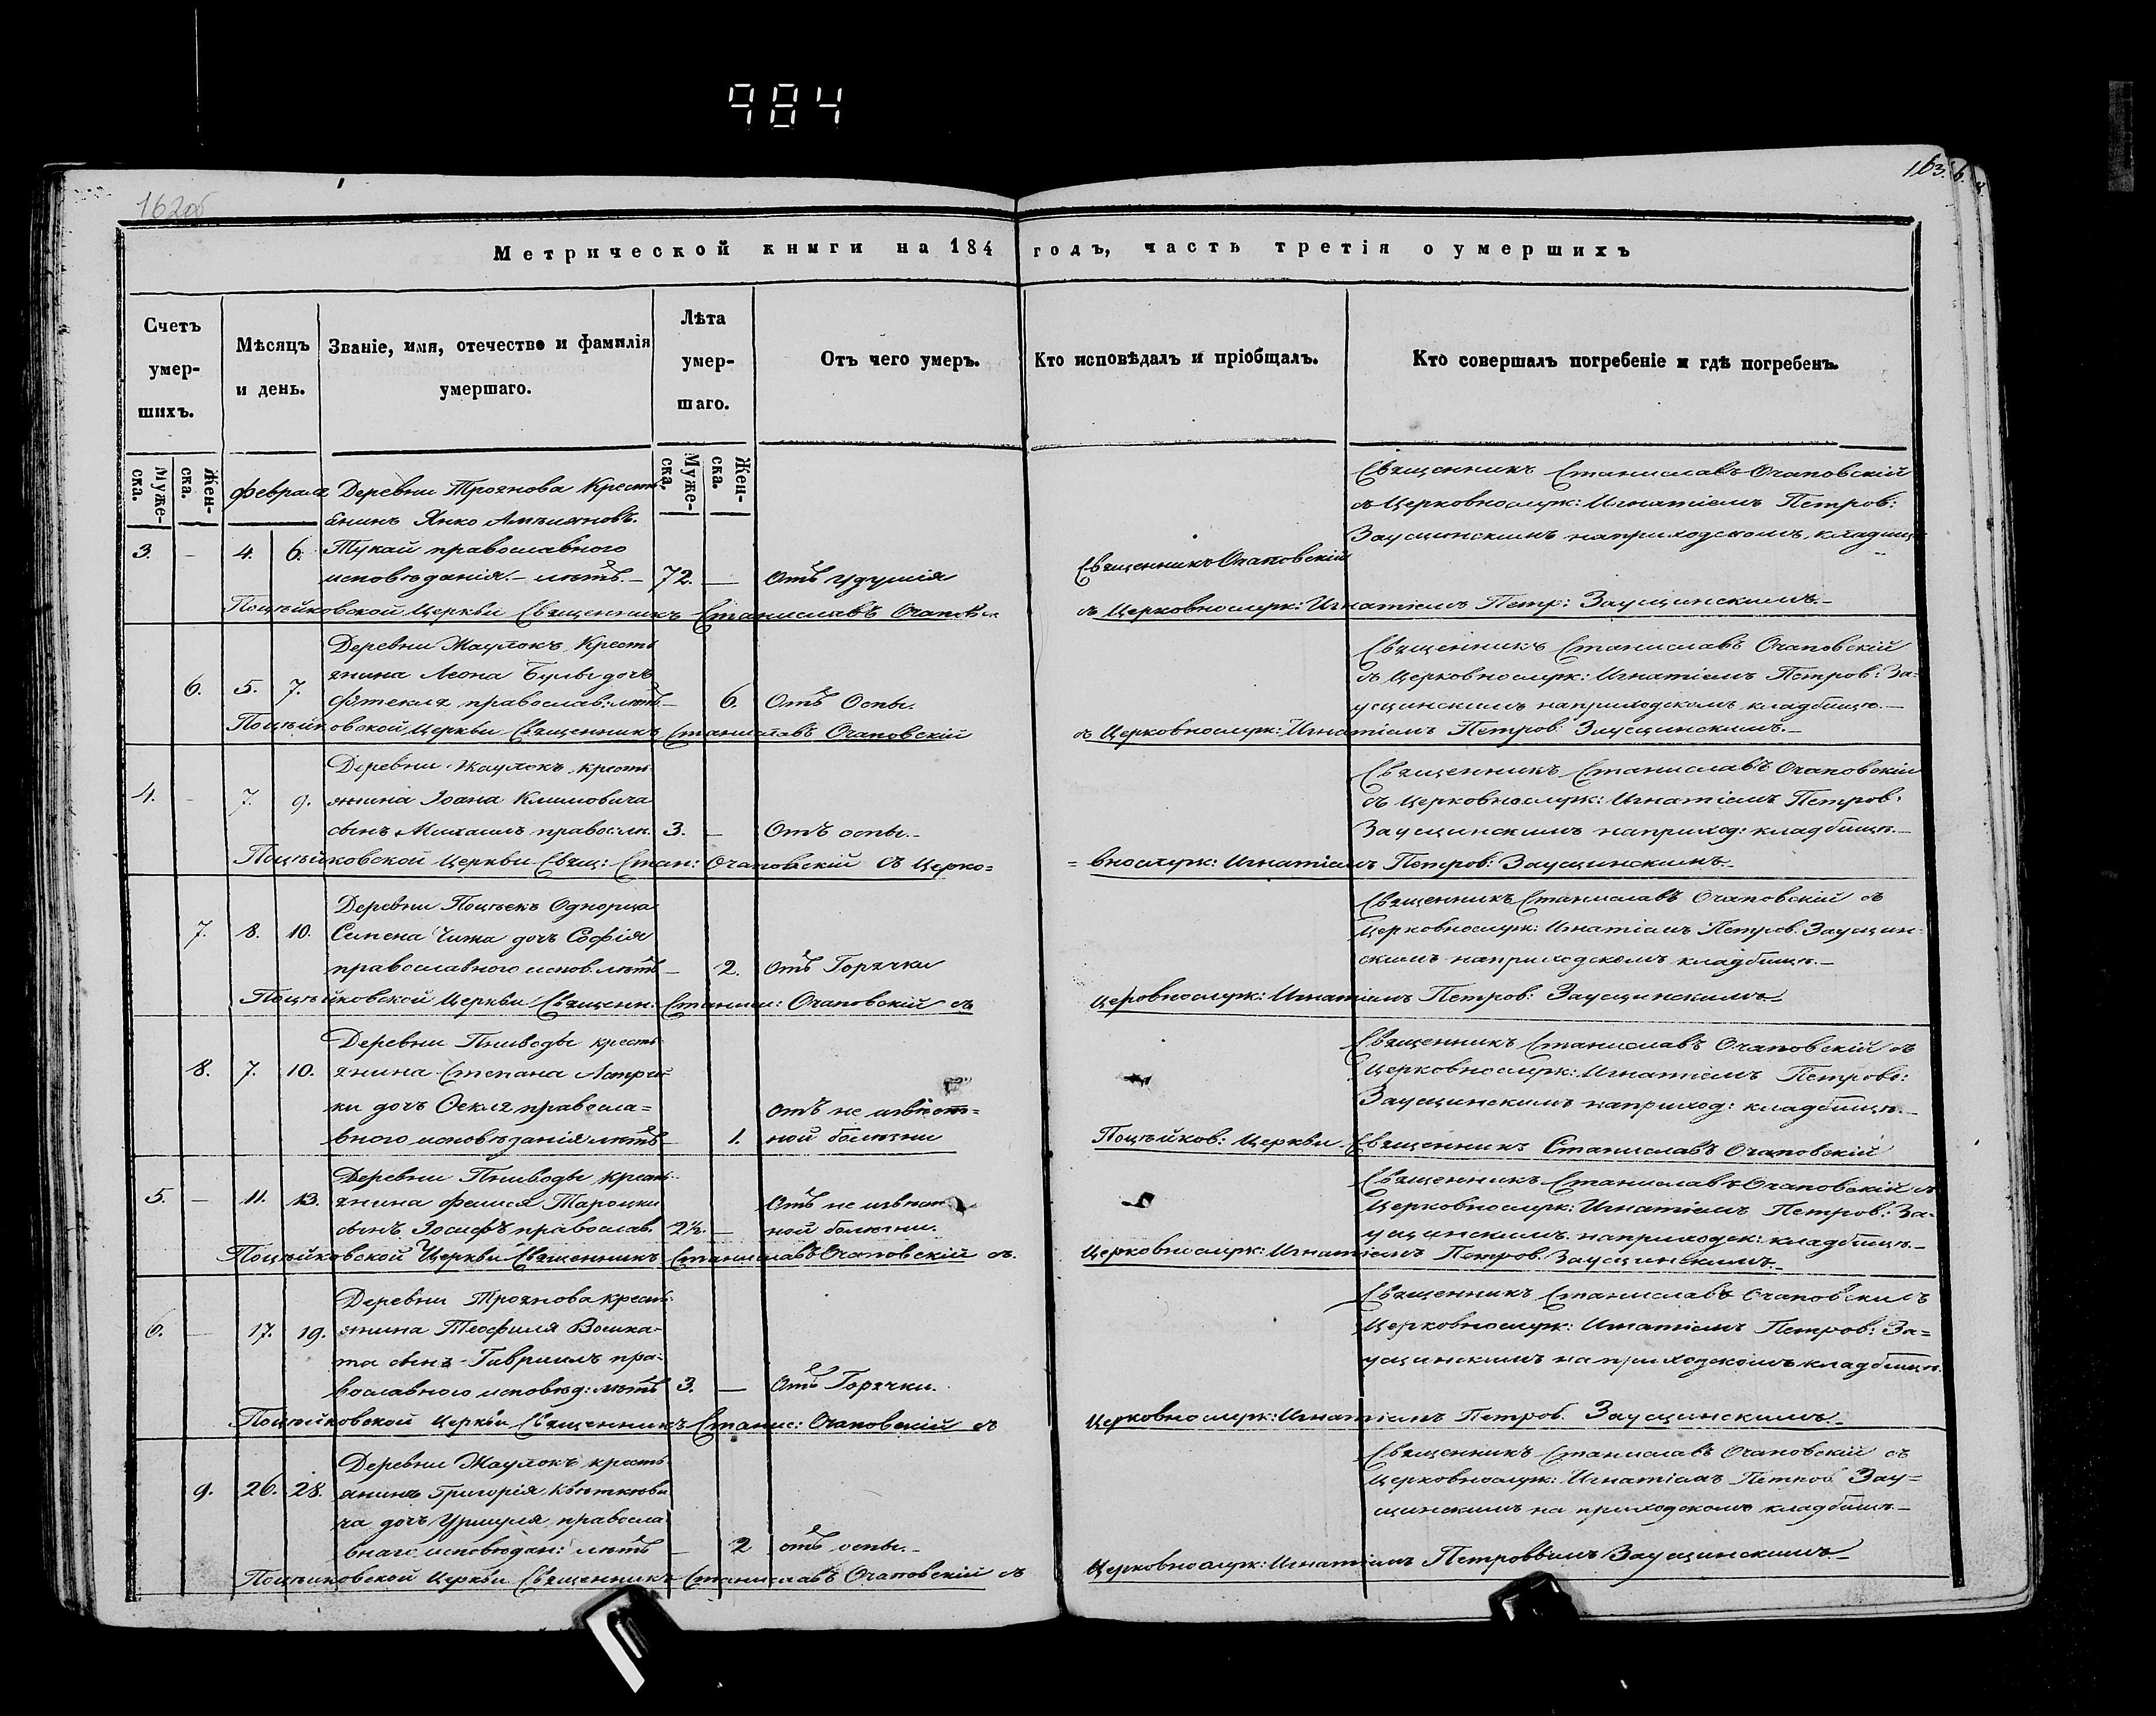 984
162об
163.
Метрической книги на 184 годъ, часть третія о умершихъ
Счетъ умер-шихъ.
Мѣсяцъ и день.
Званіе, имя, отечество и фамилія умершаго.
Лѣта умер-шаго.
Отъ чего умеръ.
Кто исповѣдалъ и пріобщалъ.
Кто совершалъ погребеніе и гдѣ погребенъ.
Муже-ска.
Жен-ска.
Муже-ска.
Жен-ска.
февраля
Деревни Троянова Кресть
янинъ Янко
3. — 4. 6. Тукай православного
исповѣданія.— лѣтъ.— 72. — Отъ удушія
Священникъ Очаповскій
Священникъ Станиславъ Очаповскій
съ Церковнослуж: Игнатіемъ Петров:
Заусцинскимъ на приходскомъ кладбищѣ
Поцѣйковской Церкви Священникъ Станиславъ съ Церковнослуж: Игнатіемъ Петр: Заусцинскимъ.—
Деревни Жаулокъ Кресть
янина Леона дочь
6. 5. 7. православ: лѣтъ— 6. Отъ Оспы.
Священникъ Станиславъ Очаповскій
съ Церковнослуж: Игнатіемъ Петров: За-
усцинскимъ на приходскомъ кладбищѣ.—
Поцѣйковской Церкви Священникъ Станиславъ Очаповскій съ Церковнослуж: Игнатіемъ Петров: Заусцинскимъ.—
Деревни Жаулокъ кресть
4. — 7. 9. янина Іоана Климовича
сынъ Михаилъ правос: лѣ. 3. — Отъ оспы.—
Священникъ Станиславъ Очаповскій
съ Церковнослуж: Игнатіемъ Петров:
Заусцинскимъ на приход: кладбищѣ.—
Поцѣйковской Церкви Свящ: Стан: Очаповскій съ Церко= =внослуж: Игнатіемъ Петров: Заусцинскимъ.—
Деревни Поцѣекъ Однорца
7. 8. 10. Семена Чижа дочь Софія
православного испов. лѣтъ — 2. Отъ Горячки
Священникъ Станиславъ Очаповскій съ
Церковнослуж: Игнатіемъ Петров. Заусцин-
скимъ на приходскомъ кладбищѣ.—
Поцѣйковской Церкви Священ: Станис: Очаповскій съ Церовнослуж: Игнатіемъ Петров: Заусцинскимъ
Деревни Пниводы кресть
8. 7. 10. янина Степана
ки дочь правосла=
вного исповѣданія лѣтъ — 1. Отъ не извѣст=
ной болѣзни
Поцѣйков: Церкви Священникъ Станиславъ Очаповскій
Священникъ Станиславъ Очаповскій съ
Церковнослуж: Игнатіемъ Петрово:
Заусцинскимъ на приход: кладбищѣ.—
Деревни Пниводы крест
5. — 11. 13. янина
сынъ Іосифъ православ. 2½ — Отъ не извѣст
ной болѣзни.
Священникъ Станиславъ Очаповскій съ
Церковнослуж: Игнатіемъ Петров: За-
усцинскимъ на приходск: кладбищѣ.—
Поцѣйковской Церкви Священникъ Станиславъ Очаповскій съ Церковнослуж: Игнатіемъ Петров. Заусцинскимъ.—
Деревни Троянова кресть
6. — 17. 19. янина Теофиля Вошка-
та сынъ Гавріилъ пра-
вославного исповѣд: лѣтъ 3. — Отъ Горячки.
Священникъ Станиславъ
Церковнослуж: Игнатіемъ Петров: За=
усцинскимъ на приходскомъ кладбищѣ
Поцѣйковской Церкви Священникъ Станис: Очаповскій съ Церковнослуж: Игнатіемъ Петров. Заусцинскимъ.—
Деревни Жаулокъ кресть
9. 26. 28. янинъ Григорія Квяткеви
ча дочь Уршуля правосла
внаго исповѣдан: лѣтъ — 2 отъ оспы.—
Священникъ Станиславъ Очаповскій съ
Церковнослуж: Игнатіемъ Петров Зау=
сцинскимъ на приходскомъ кладбищѣ—
Поцѣйковской Церкви Священникъ Станиславъ Очаповскій съ Церковнослуж: Игнатіемъ Петроввымъ Заусцинскимъ—